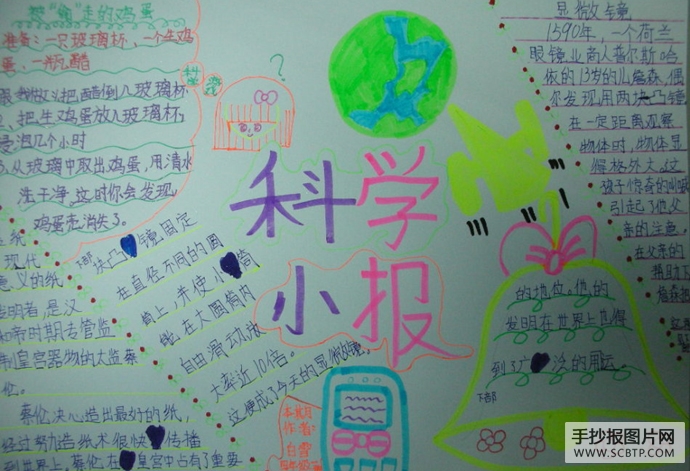 走的鸡蛋
准备:一只玻璃杯,一个生鸡
蛋,一瓶醋
把醋倒入玻璃杯
把生鸡蛋放入玻璃杯
浸泡几个小时
3.从玻璃中取出鸡蛋,用清水
洗干净,这时你会发现,
鸡蛋壳消失了。
科学
小报
显微镜
1590年,一个荷兰
眼镜业商人普尔斯哈
依的13岁的儿詹森,偶
尔发现用两块凸镜
在一定距离观察
物体时,物体显
得格外大。这
孩子惊奇的叫喊
引起了他父
亲的注意。
在父亲的
下部
块凸镜固定
在直径不同的圆
筒上,并使小筒
能在大圆筒内
自由滑动,放
大率近10倍。
这便成了今天的显微镜。
现代
意义的纸
发明者,是汉
和帝时期专管监
制皇宫器物的太监蔡
伦。
蔡伦决心造出最好的纸,
经过努力造纸术很快传播
到世界上,蔡伦在皇宫中占有了重要
的地位,他的
发明在世界上也得
到了广泛的用运。
下部
本期
作者:
白雪
手抄报图片网
WWW.SCBTP.COM